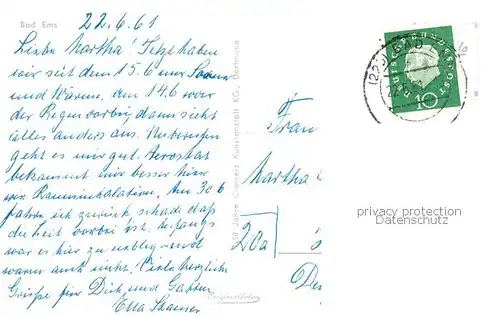 Bad Ems
22.6.61
Liebe Martha! Jetzt haben
wir seit dem 15.6 nur Sonne
und Wärme, am 14.6 war
der Regen vorbei, dann sieht
alles anders aus. Unberufen
geht es mir gut. Aerostat
bekommt mir besser hier
wie Rauminhalation. Am 30.6
fahre ich zurück schade daß
die Zeit vorbei ist. Anfangs
war es hier zu neblig und
waren auch nichts. Viele herzliche
Grüße für Dich und Gatten
Ella
50 Jahre Cramers Kunstanstalt KG, Dortmund
DEUTSCHE BUNDESPOST
10
Frau
Martha
20a
privacy protection
Datenschutz
Originalfoto